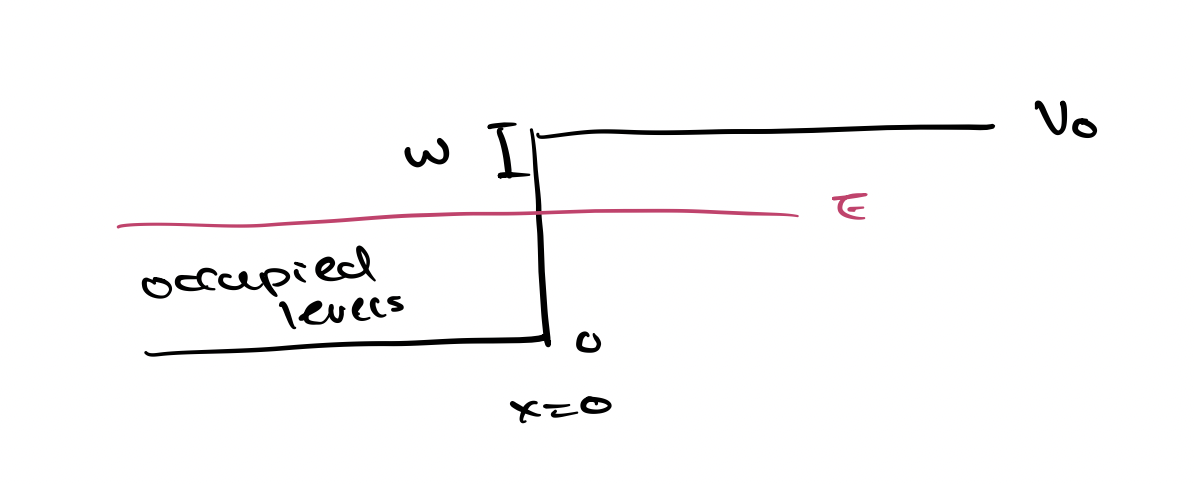 V₀
W
E
occupied
levels
0
x=0